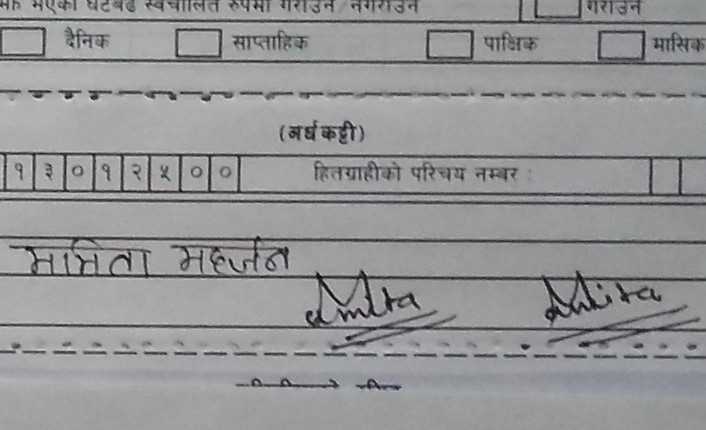 भएको घटबढ स्वचालित रुपमा गराउन/नगराउन गराउन
दैनिक साप्ताहिक पाक्षिक मासिक
(अर्धकट्टी)
१३०१२५०० हितग्राहीको परिचय नम्बर :
मामिता महर्जन